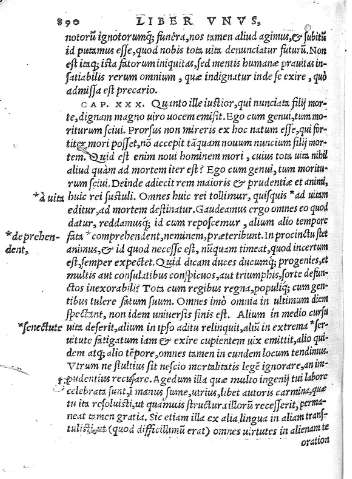 890 LIBER VNVS,
notorũ ignotorumq; funera, nos tamen aliud agimus, & subitũ
id putamus esse, quod nobis tota uita denunciatur futurũ. Non
est itaq; ista fatorum iniquitas, sed mentis humanæ prauitas in-
satiabilis rerum omnium, quæ indignatur inde se exire, quò
admissa est precario.
CAP. XXX. Quanto ille iustior, qui nunciata filij mor-
te, dignam magno uiro uocem emisit. Ego cum genui, tum mo-
riturum sciui. Prorsus non mireris ex hoc natum esse, qui for-
titer mori posset, nõ accepit tãquam nouum nuncium filij mor-
tem. Quid est enim noui hominem mori, cuius tota uita nihil
aliud quàm ad mortem iter est? Ego cum genui, tum moritu-
rum sciui. Deinde adiecit rem maioris & prudentiæ et animi,
*à uita huic rei sustuli. Omnes huic rei tollimur, quisquis *ad uitam
editur, ad mortem destinatur. Gaudeamus ergo omnes eo quod
datur, reddamusq; id cum reposcemur, alium alio tempore
*deprehen- fata *comprehendent, neminem, præteribunt. In procinctu stet
dent, animus, & id quod necesse est, nũquam timeat, quod incertum
est, semper expectet. Quid dicam duces ducumq; progenies, et
multis aut consulatibus conspicuos, aut triumphis, sorte defun-
ctos inexorabili? Tota cum regibus regna, populiq; cum gen-
tibus tulere fatum suum. Omnes imò omnia in ultimum diem
spectant, non idem uniuersis finis est. Alium in medio cursu
*senectute uita deserit, alium in ipso aditu relinquit, aliũ in extrema *ser-
uitute fatigatum iam & exire cupientem uix emittit, alio qui-
dem atq; alio tẽpore, omnes tamen in eundem locum tendimus.
Vtrum ne stultius sit nescio mortalitatis legẽ ignorare, an im-
prudentius recusare. Agedum illa quæ multo ingenij tui labore
celebrata sunt, in manus sume, utriusq; libet autoris carmina, quæ
tu ita resoluisti, ut quamuis structura illorũ recesserit, perma-
neat tamen gratia. Sic etiam illa ex alia lingua in aliam trans-
tulisti, ut (quod difficillimũ erat) omnes uirtutes in alienam te
oration